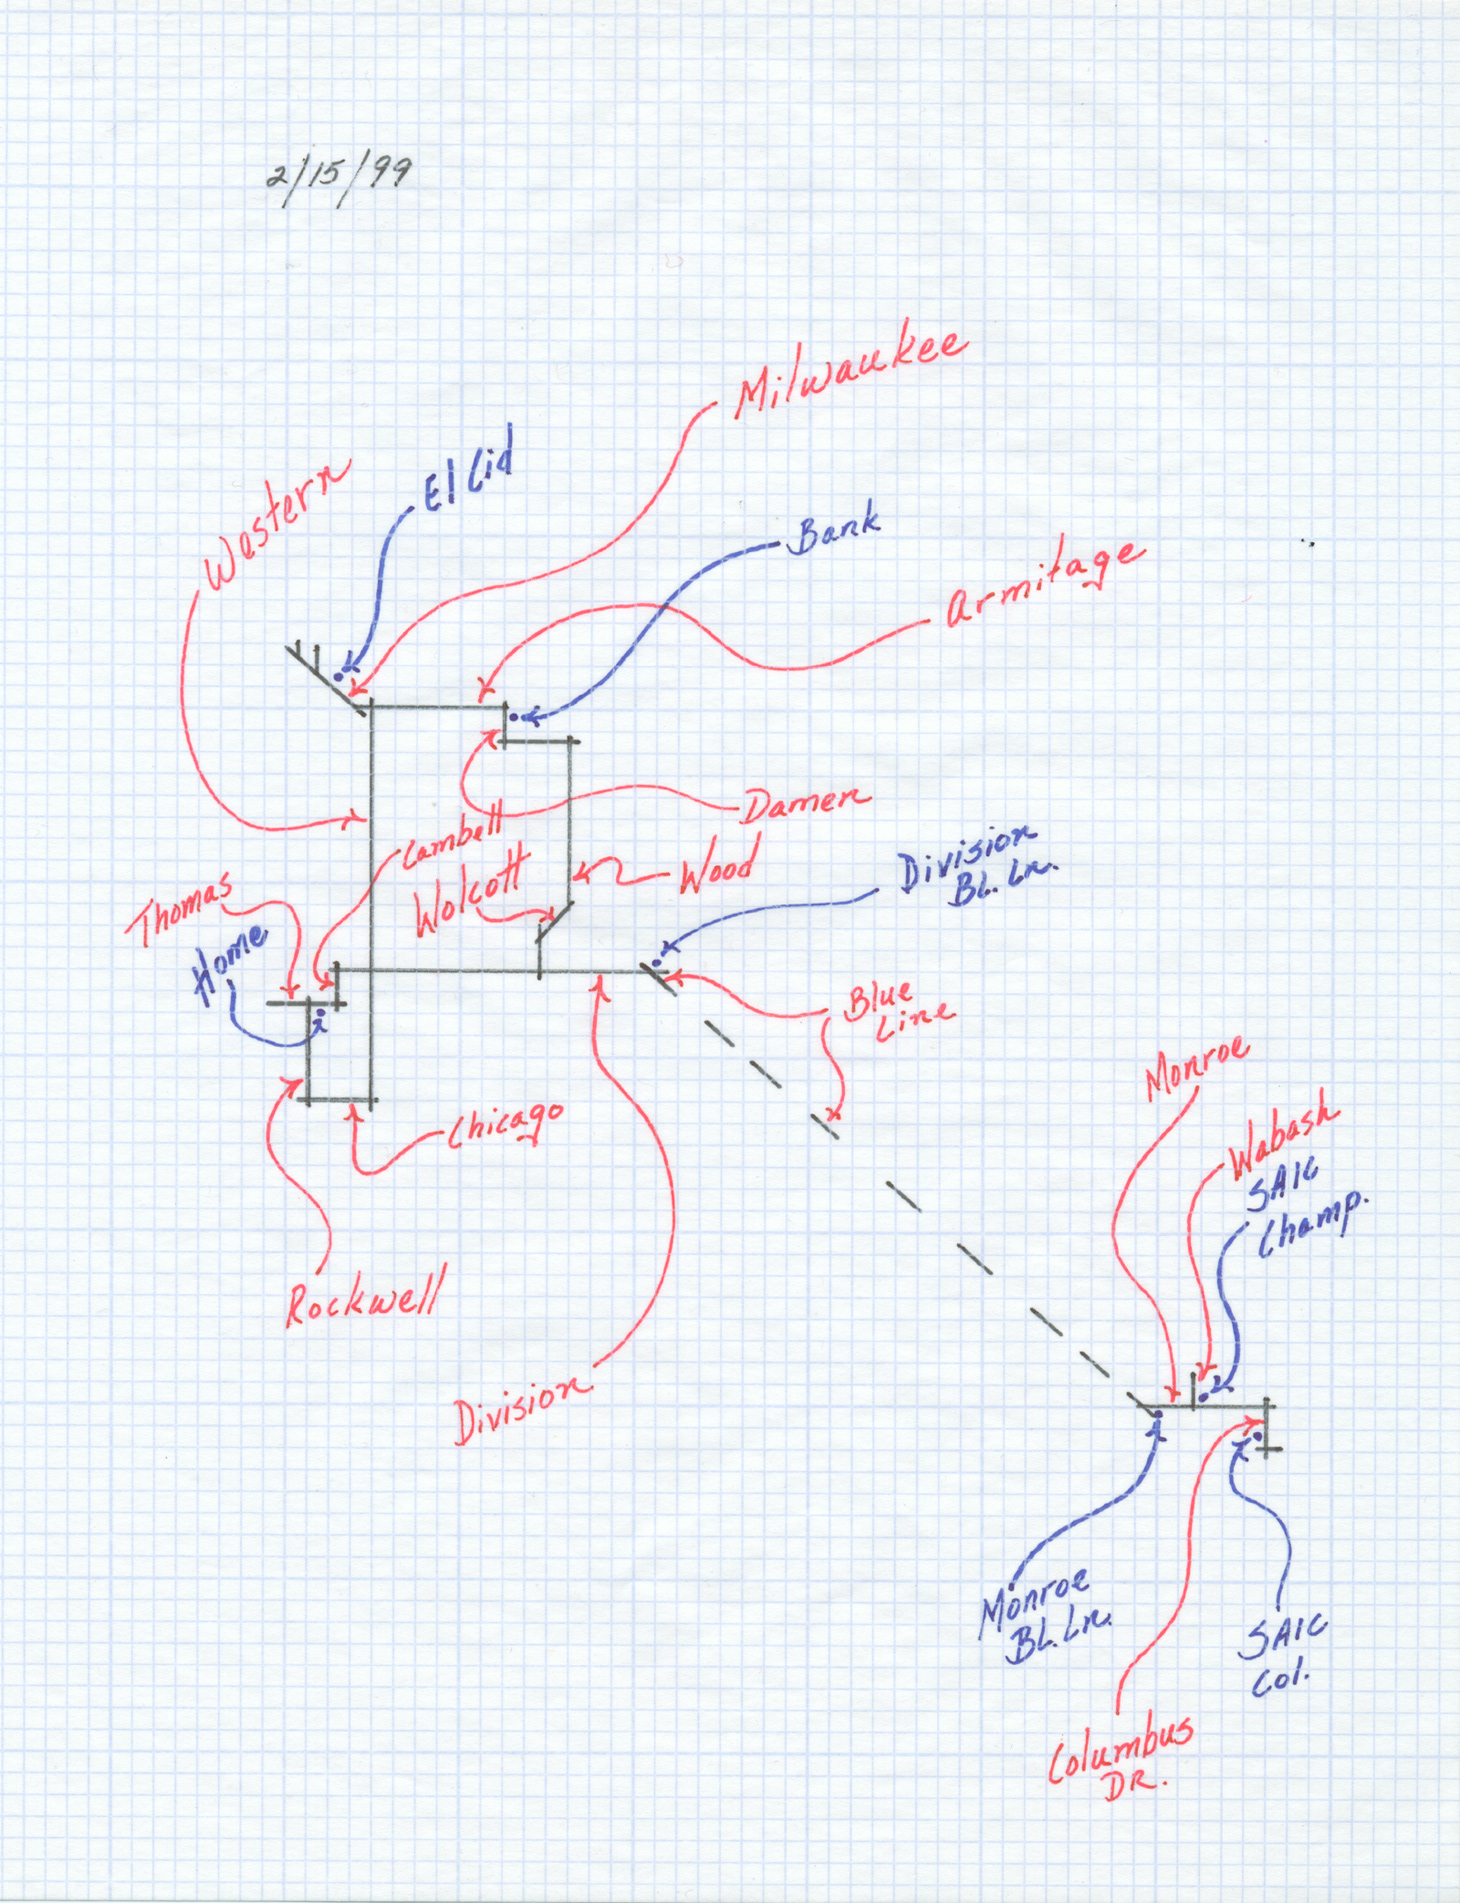 2/15/99
Milwaukee
El Cid
Western
Bank
Armitage
Damen
Cambell
Wolcott
Wood
Division
BL. Ln.
Thomas
Home
Blue
Line
Monroe
Wabash
SAIC
Champ.
Chicago
Rockwell
Division
Monroe
BL. Ln.
SAIC
Col.
Columbus
DR.